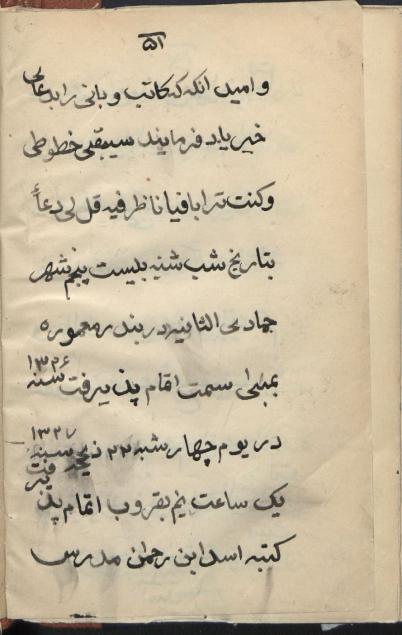 ۵۱
و امید آنکه کاتب و بانی را بدعای
خیر یاد فرمایند سیبقی خطوطی
وکنت ترابا فیا ناظر فیه قل لی دعاً
بتاریخ شب شنبه بیست پنجم شهر
جمادی الثانیه در بندر معموره
بمبئی سمت اتمام پذیرفت سنه ۱۳۲۶
در یوم چهارشبه ۲۲ سنه ۱۳۲۷
یک ساعت بقروب اتمام پذیرفت
کتبه اسد ابن رحمن مدرس